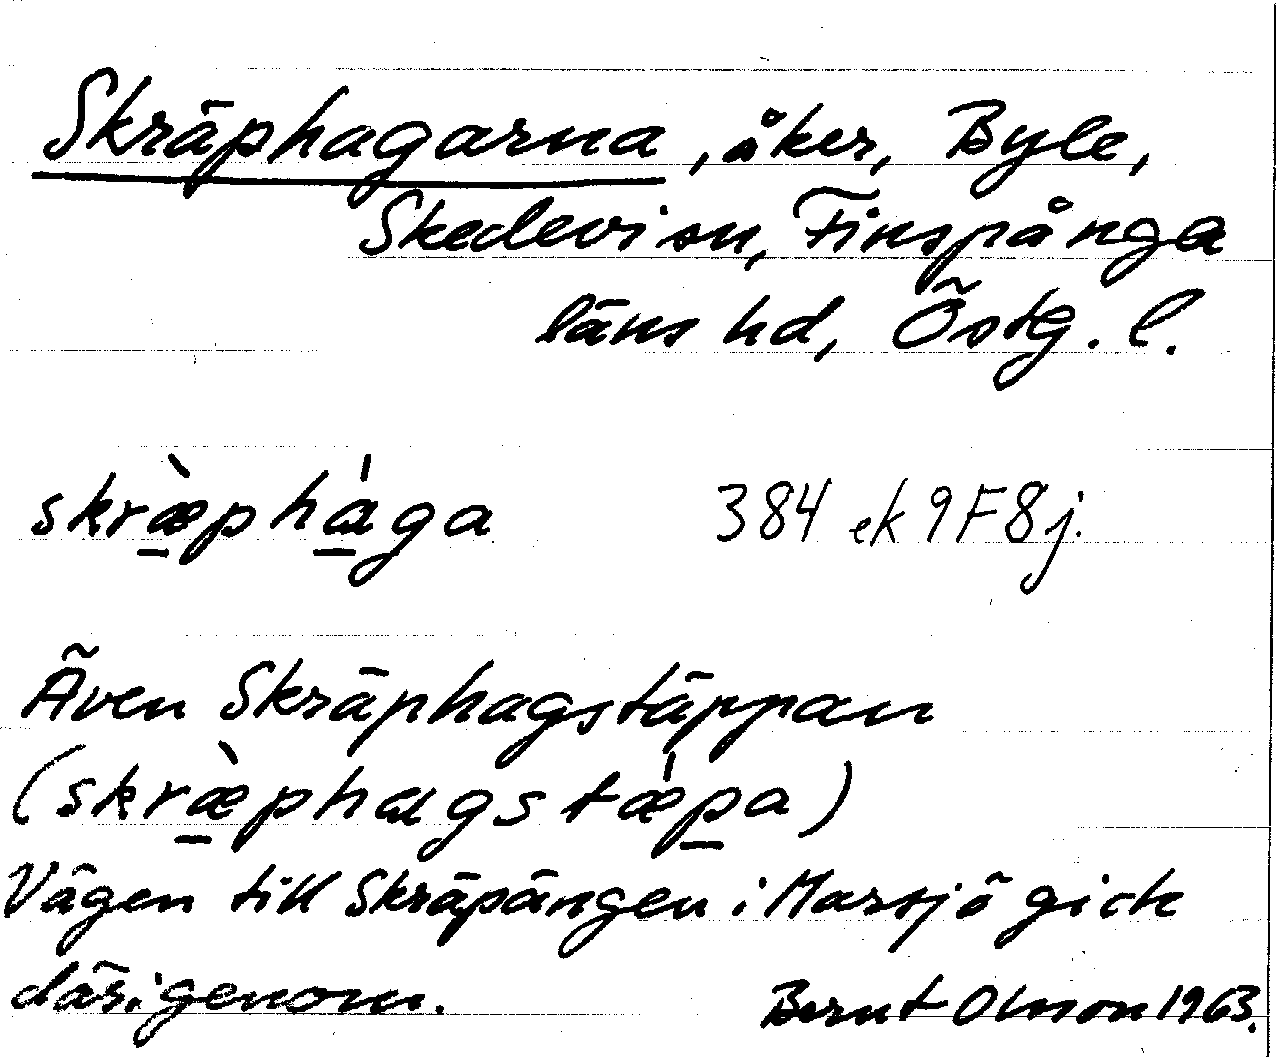 Skräphagarna, åker, Byle,
Skedevi sn, Finspånga
läns hd, Östg. l.
skræ̀phága 384 ek 9F8j.
Även Skräphagstäppan
(skræ̀phagstǽpa)
Vägen till Skräpängen i Marsjö gick
därigenom. Bernt Olsson 1963.